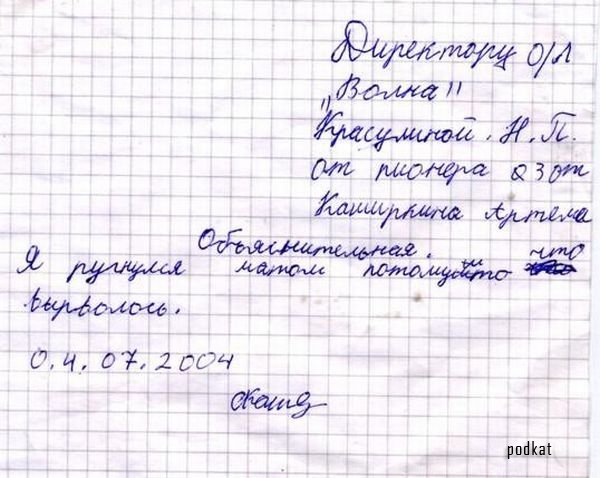 Директору О/Л
"Волна"
Красулиной. Н. П.
от пионера 2 3 от
Каширкина Артема
Объяснительная.
Я ругнулся матом потомушто что
вырволось.
0.4.07.2004
podkat